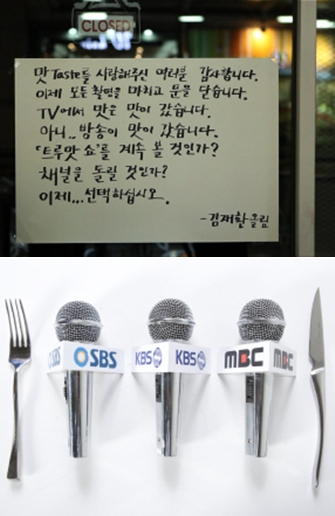 CLOSED
맛 Taste를 사랑해주신 여러분 감사합니다.
이제 모든 촬영을 마치고 문을 닫습니다.
TV에서 맛은 맛이 갔습니다.
아니.. 방송이 맛이 갔습니다.
'트루맛 쇼'를 계속 볼 것인가?
채널을 돌릴 것인가?
이제...선택하십시오.
-김재환 올림
SBS SBS KBS KBS MBC MBC